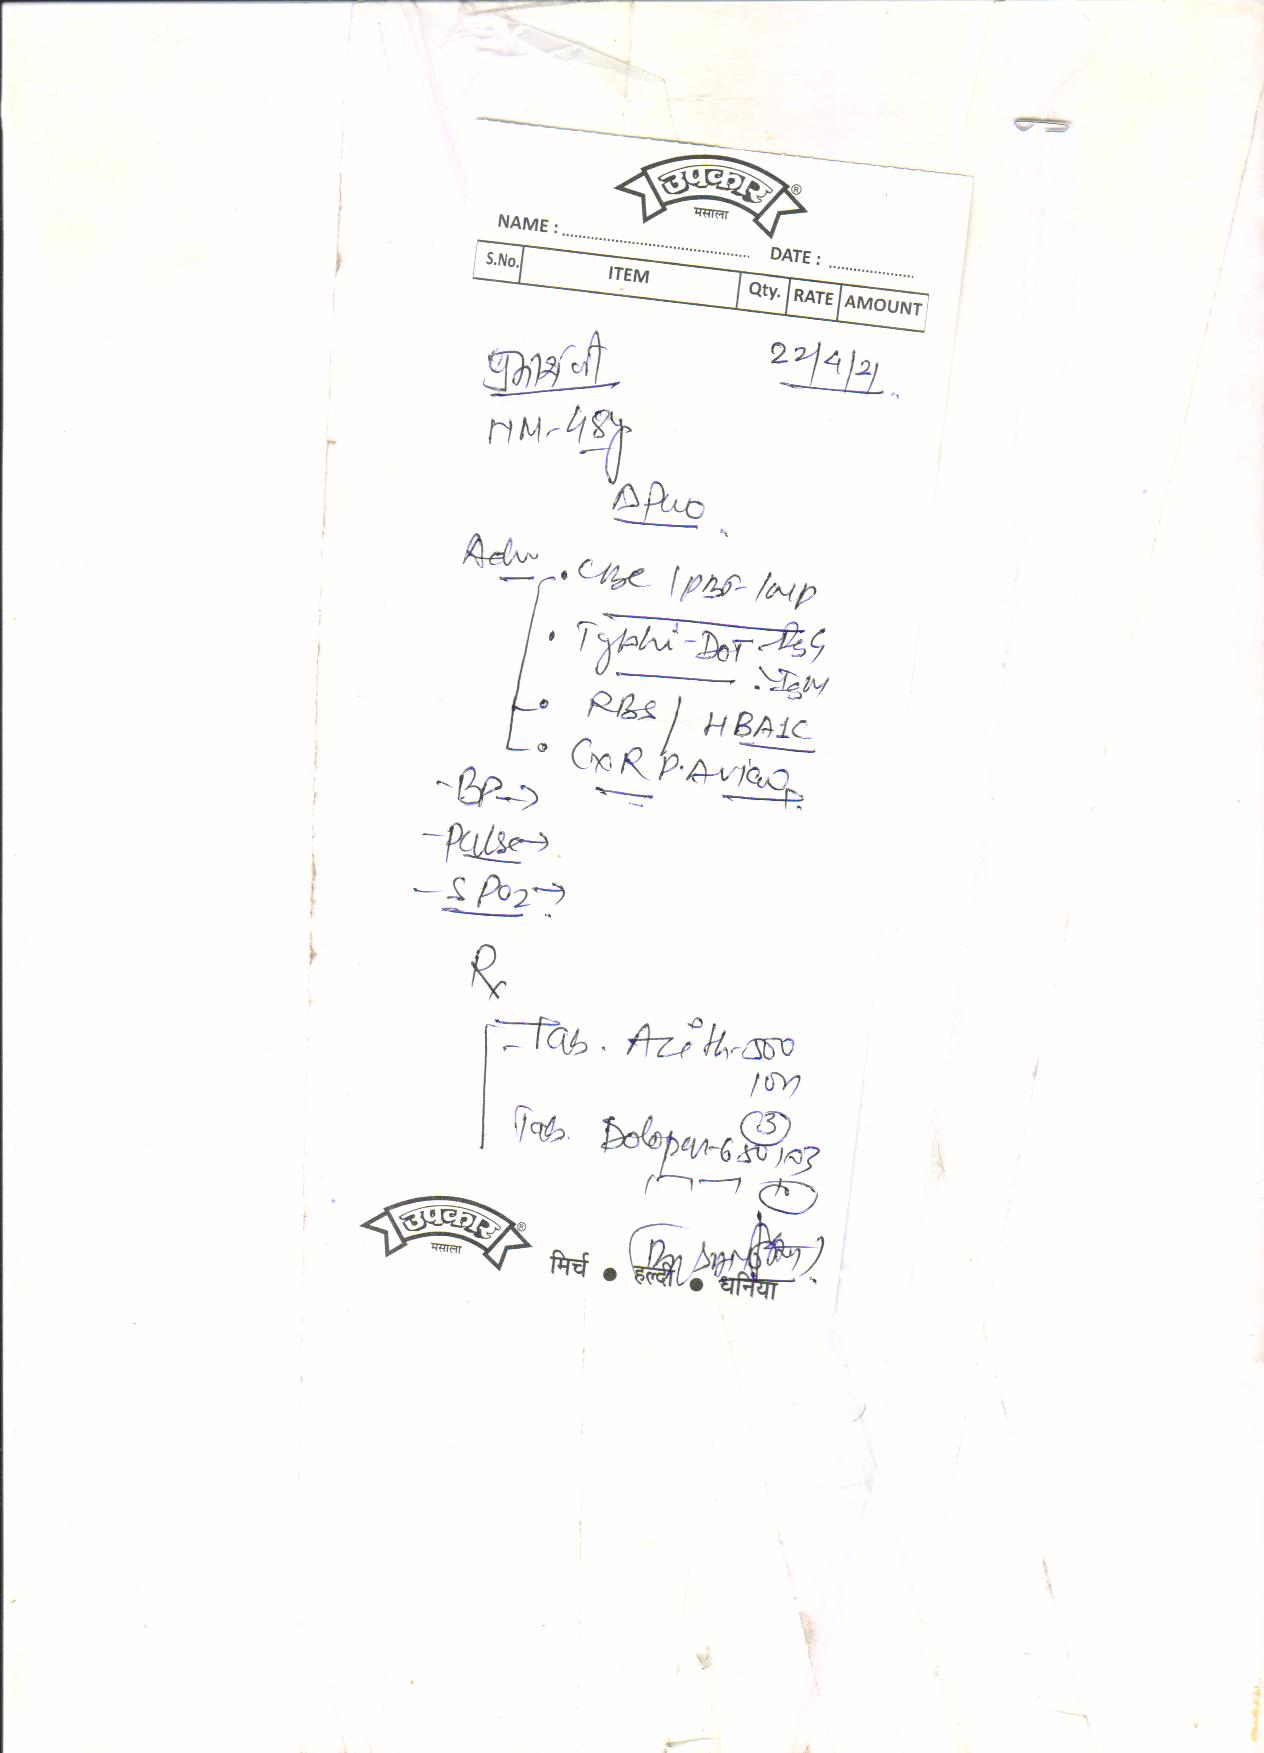 उपकार®
मसाला
NAME : DATE :
S.No. ITEM Qty. RATE AMOUNT
22/4/21
HM-48y
Δ PUO
Adv
• CBC / PBF / MP
• Typhi-DOT - IgG
- IgM
• RBS / HBA1C
• CXR P.A view
- BP →
- Pulse →
- SPO2 →
Rx
- Tab. Azith-500
Tab. Dolopar-650
उपकार®
मसाला
मिर्च ● हल्दी ● धनिया